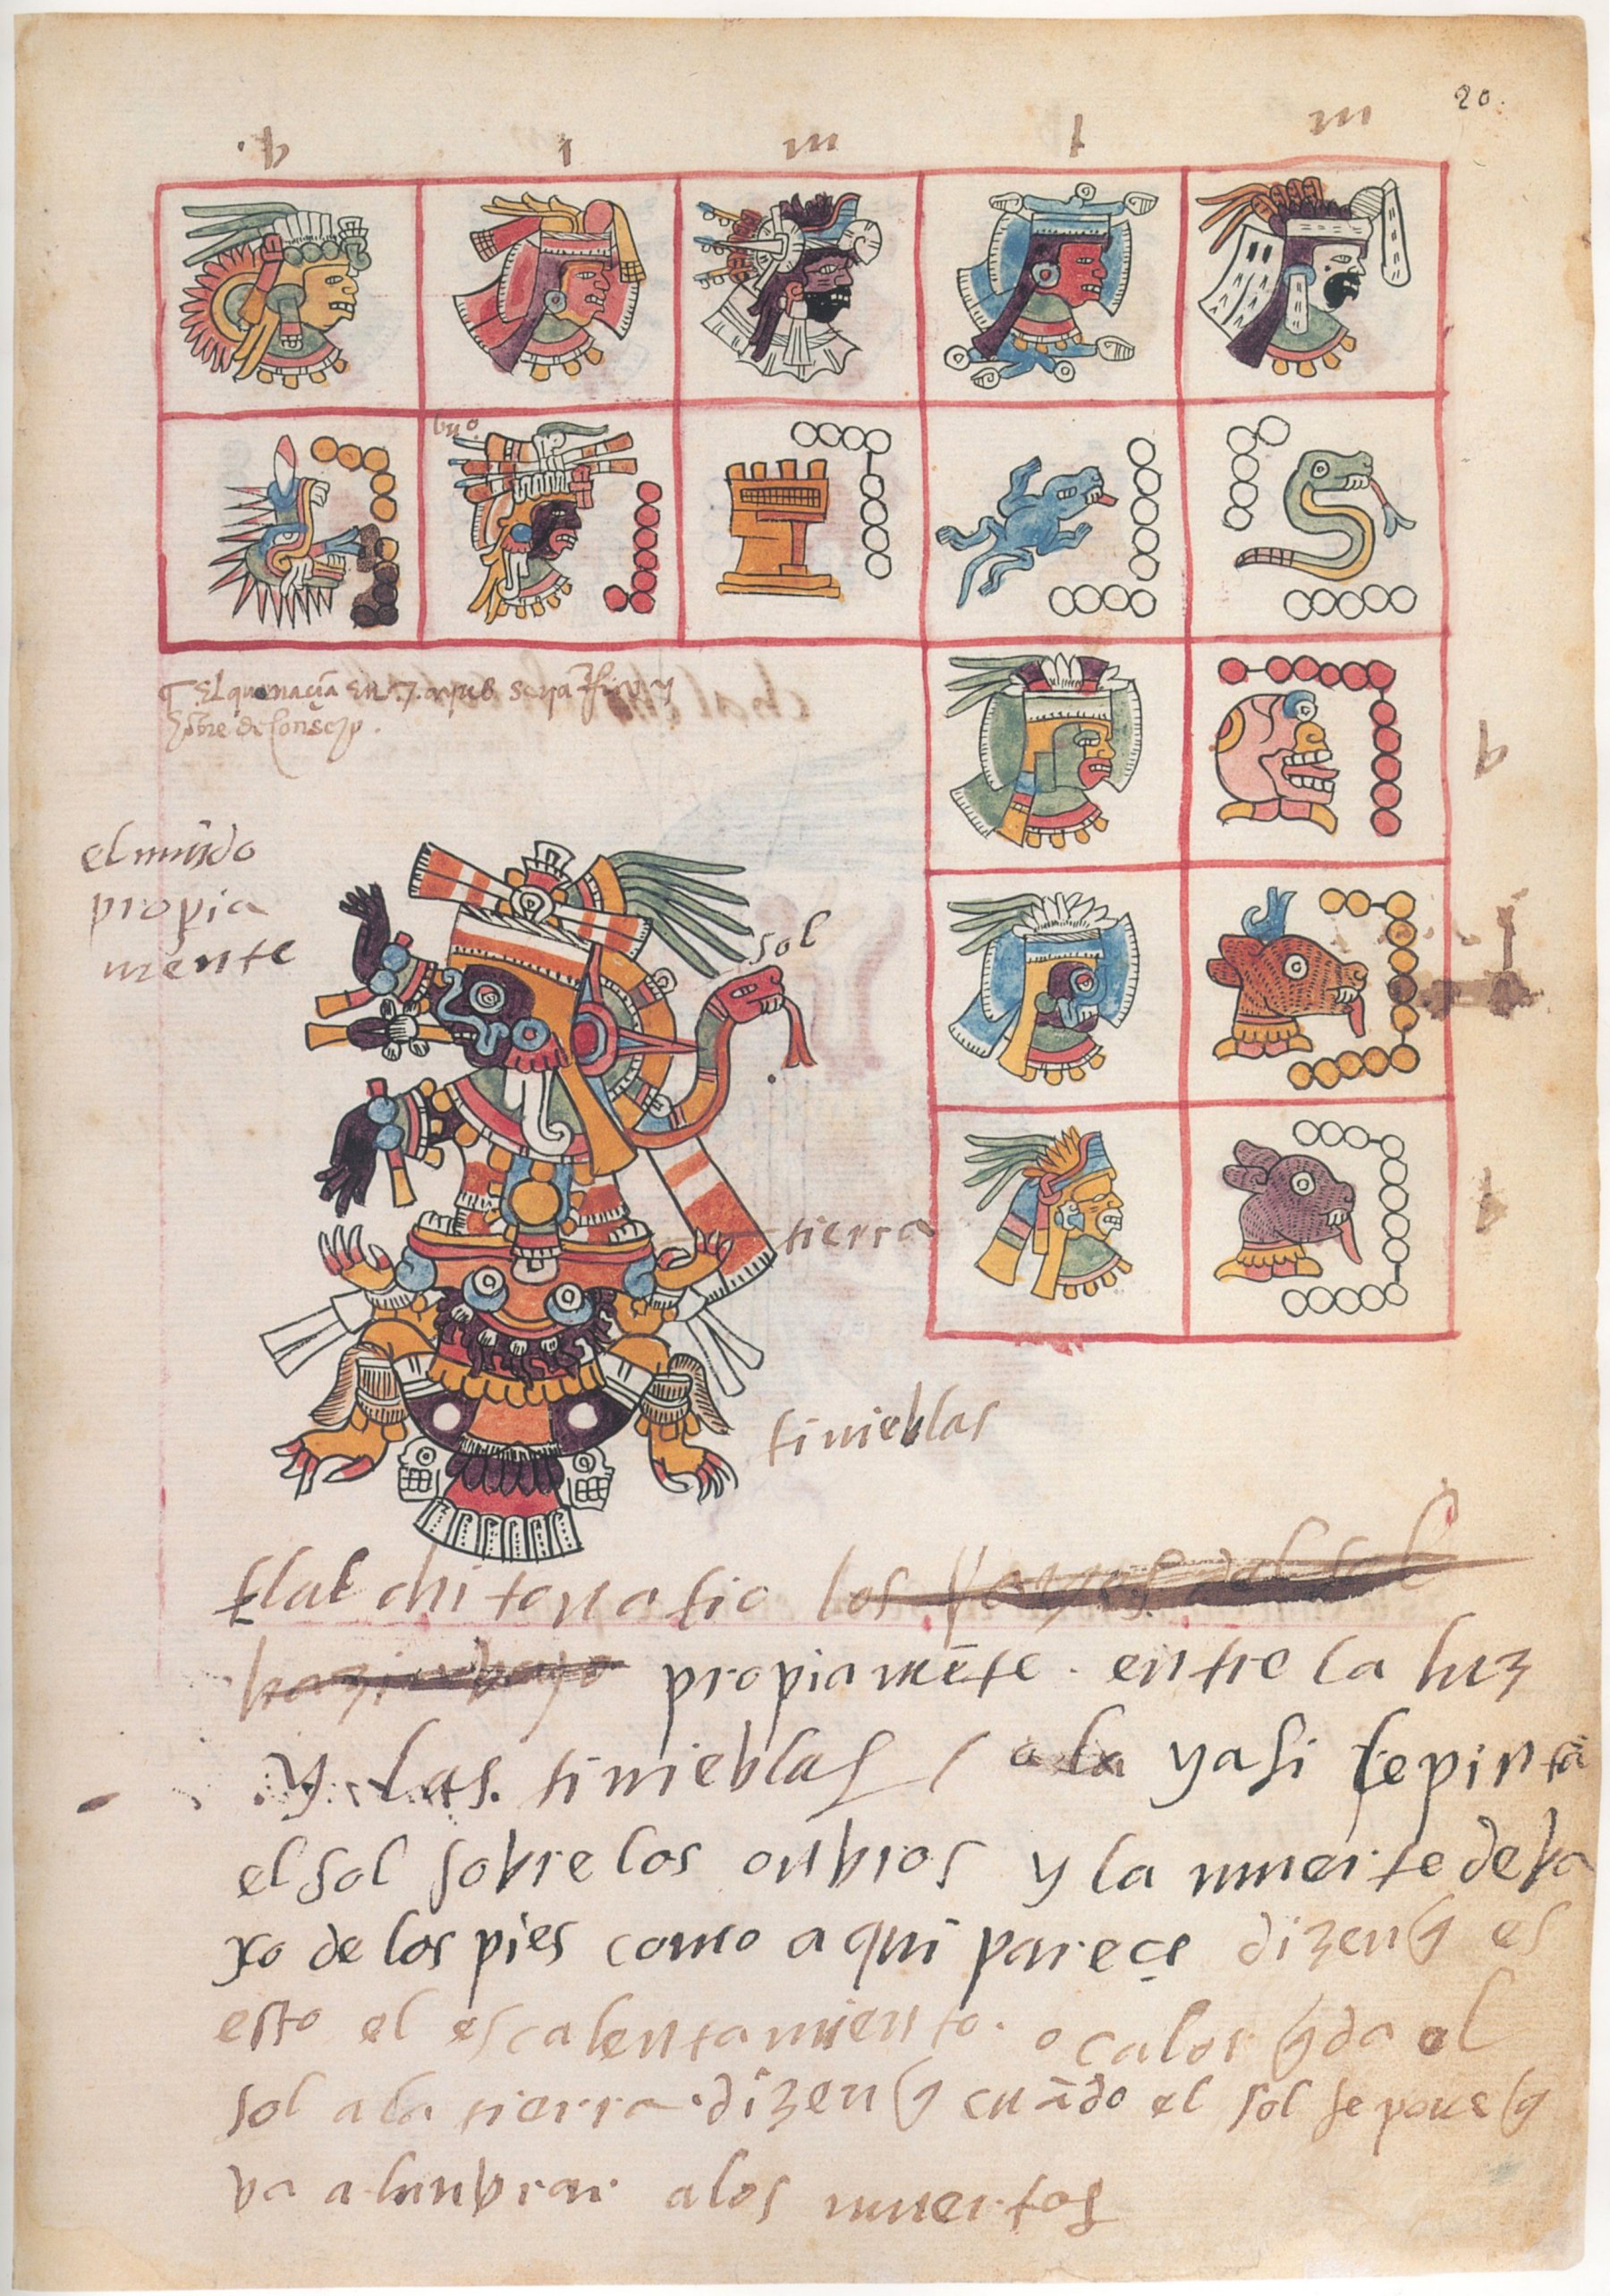 20.
b m m
buo
¶ El que nacia en .7. aq̃ueº serya Rico y
hõbre de consejo.
el mũdo
propia
mente
sol
b
tierra
tinieblas
tlalchitonatio los rayos del sol
hazia baxo propiamẽte. entre la luz
y. las. tinieblas / a la yasi se pintã
el sol sobre los onbros y la muerte deba
xo de los pies como aqui pareçe dizen q̃ es
esto el escalentamiento. o calor q̃ da el
sol a la tierra. dizen q̃ cuãdo el sol se pone q̃
va alunbrar alos muertos